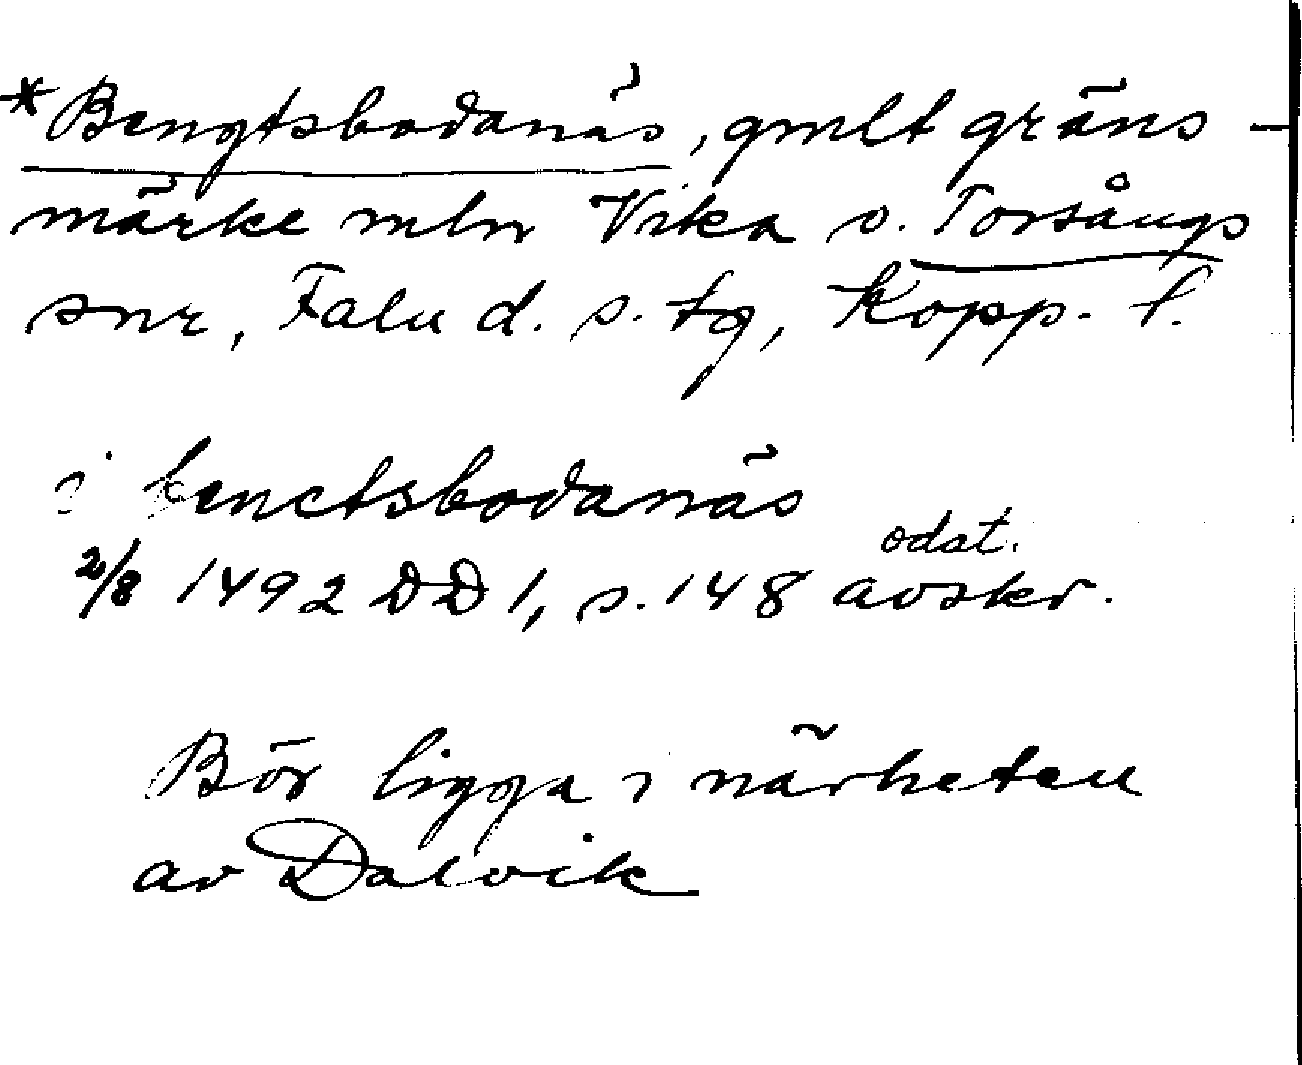 *Bengtsbodanäs, gmlt gräns-
märke mln Vika o. Torsångs
snr, Falu d. s. tg, Kopp. l.
i benctsbodanäs
odat.
2/8 1492 DD 1, s. 148 avskr.
Bör ligga i närheten
av Dalvik